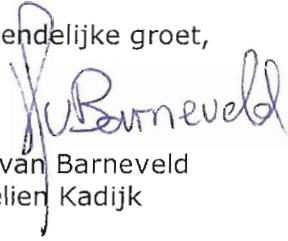 endelijke groet,
v Barneveld
van Barneveld
elien Kadijk